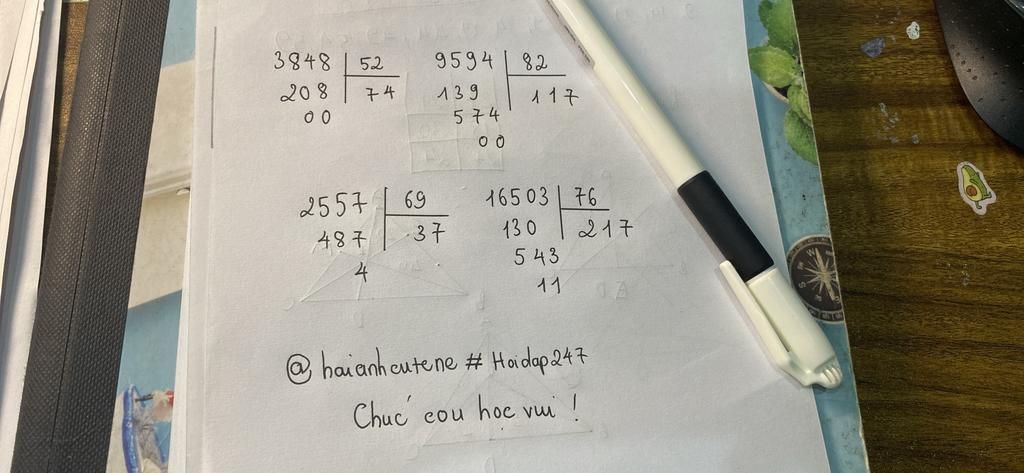 3848 52 9594 82
208 74 139 117
00 574
00
2557 69 16503 76
487 37 130 217
4 543
11
@haianhcutene #Hoidap247
Chúc cou hoc vui !